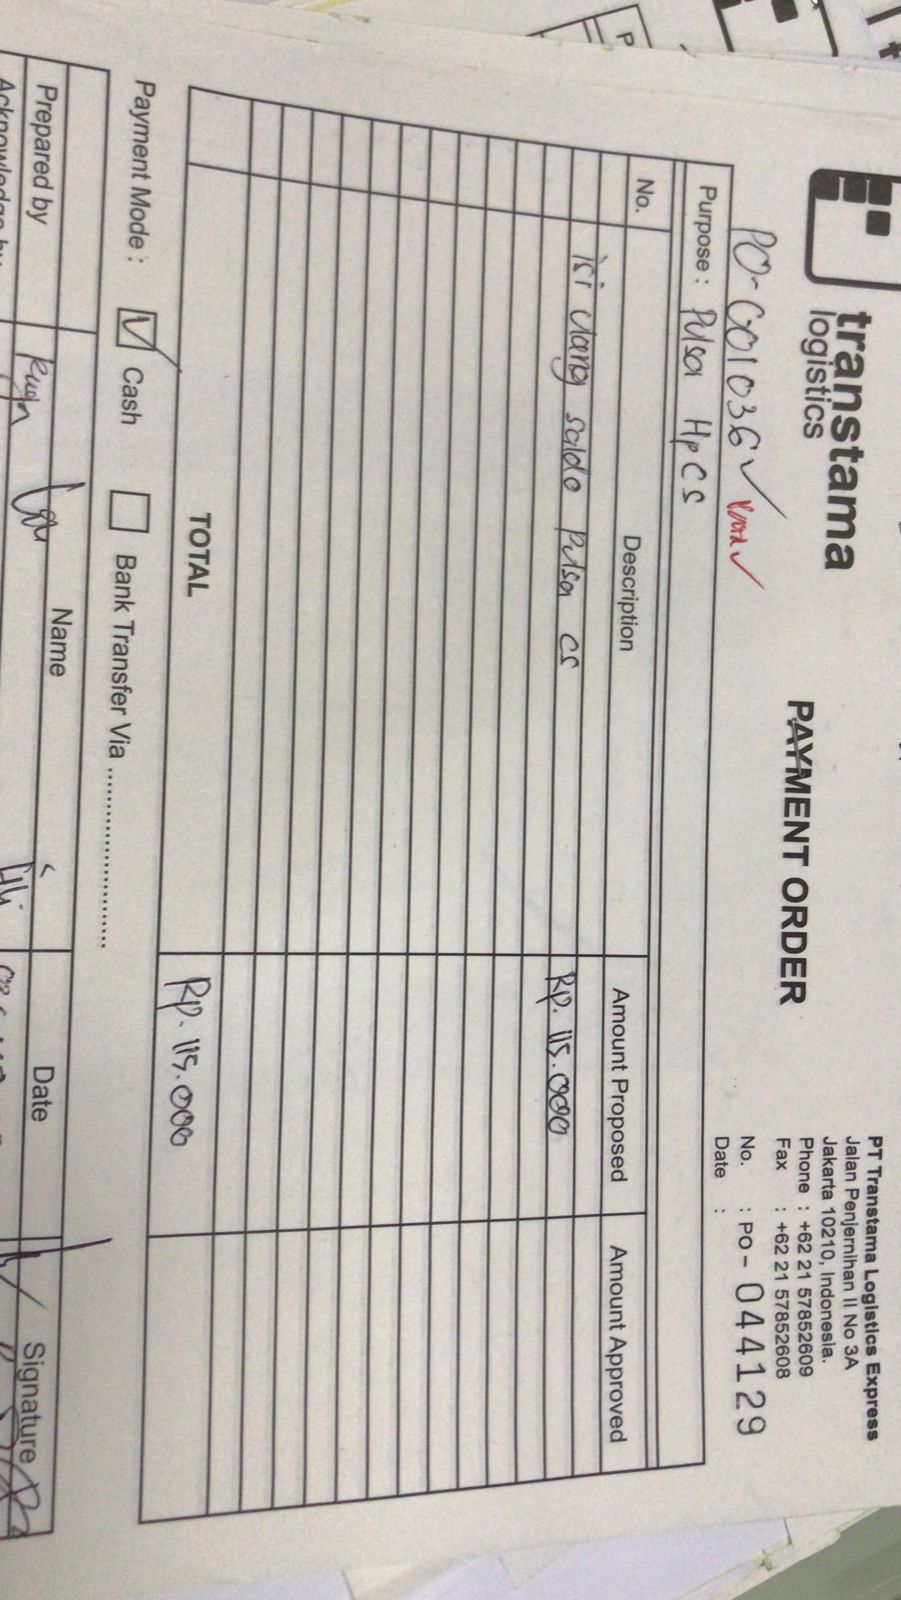 transtama
logistics
PAYMENT ORDER
PT Transtama Logistics Express
Jalan Penjernihan II No 3A
Jakarta 10210, Indonesia.
Phone : +62 21 57852609
Fax : +62 21 57852608
No. : PO - 044129
Date :
PO-G01036
Purpose : Pulsa Hp CS
No. Description Amount Proposed Amount Approved
isi ulang saldo Pulsa CS Rp. 115.000
TOTAL Rp. 115.000
Payment Mode : Cash Bank Transfer Via ........................
Name Date Signature
Prepared by
Acknowledge by